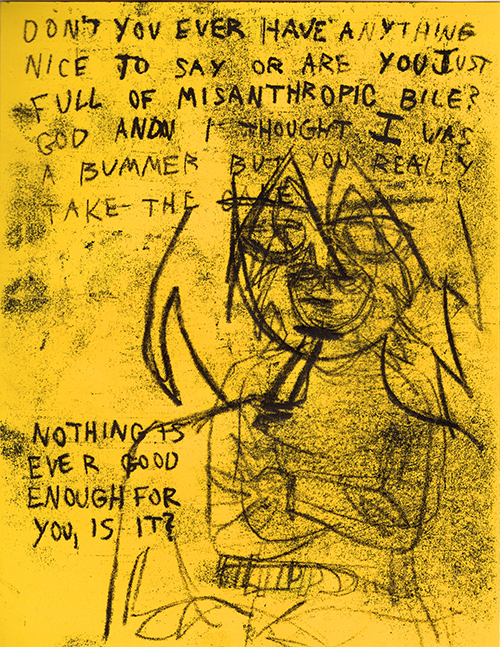 DON'T YOU EVER HAVE ANYTHING
NICE TO SAY OR ARE YOU JUST
FULL OF MISANTHROPIC BILE?
GOD ANDN I THOUGHT I WAS
A BUMMER BUT YOU REALLY
TAKE THE CAKE
NOTHING IS
EVER GOOD
ENOUGH FOR
YOU, IS IT?